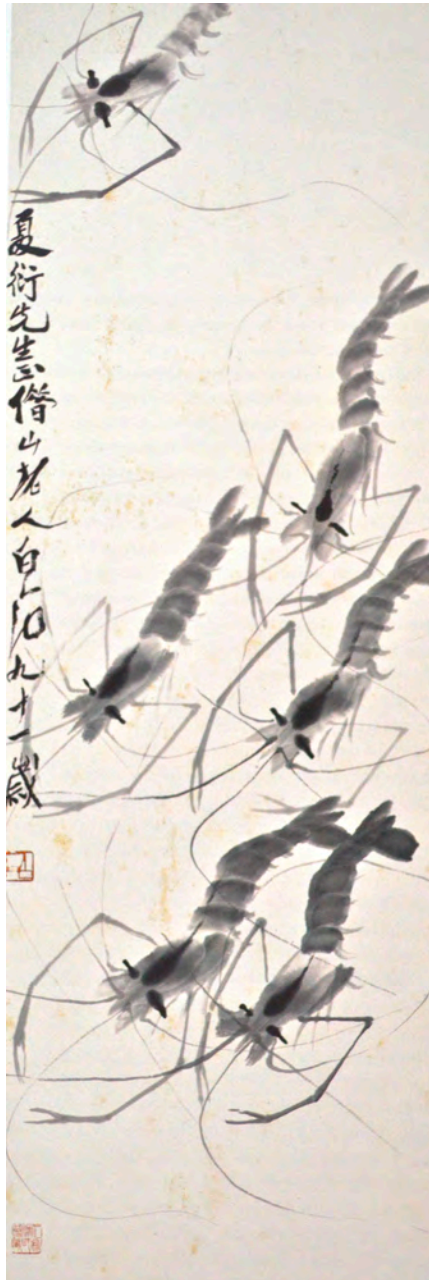 夏衍先生正借山老人白石九十一歲